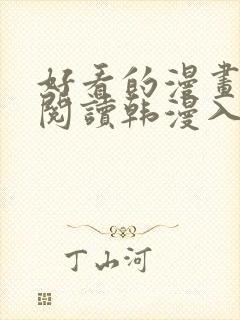 好看的漫畫
閱讀韩漫入
丁山河